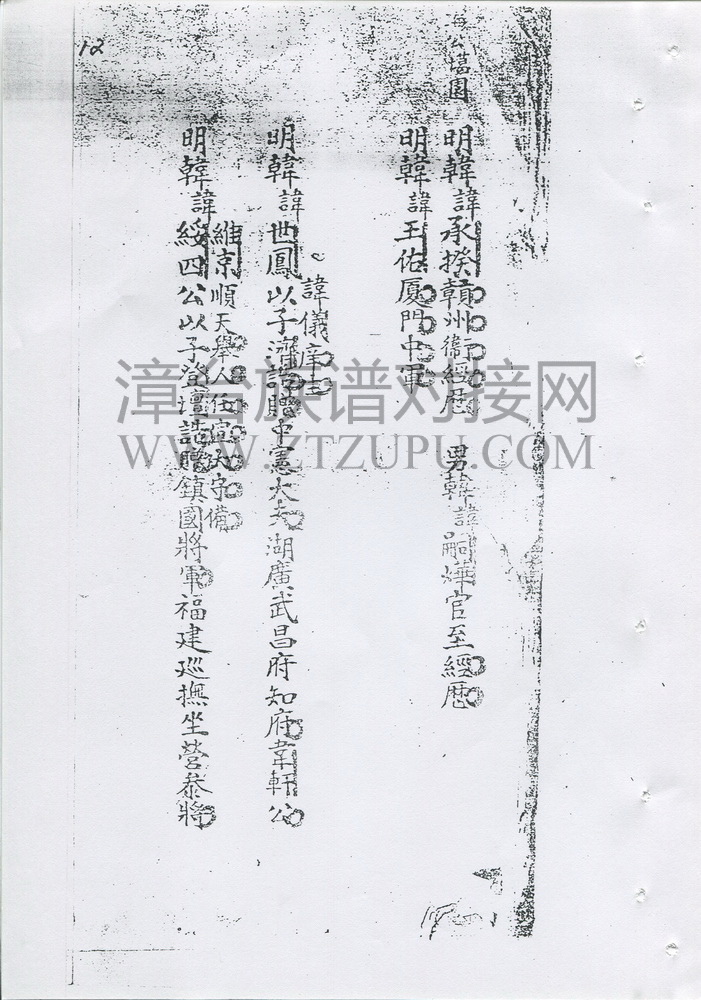 12
海公塭園
明韓諱承揆贛州衛經歷 男韓諱嗣燁官至經歷
明韓諱王佑厦門中軍
諱儀庠士
明韓諱世鳳以子濟誥贈中憲大夫湖廣武昌府知府韋軒公
維京順天舉人任宣大守備
明韓諱綏四公以子登壇誥贈鎮國將軍福建廵撫坐營叅將
漳台族谱对接网
WWW.ZTZUPU.COM